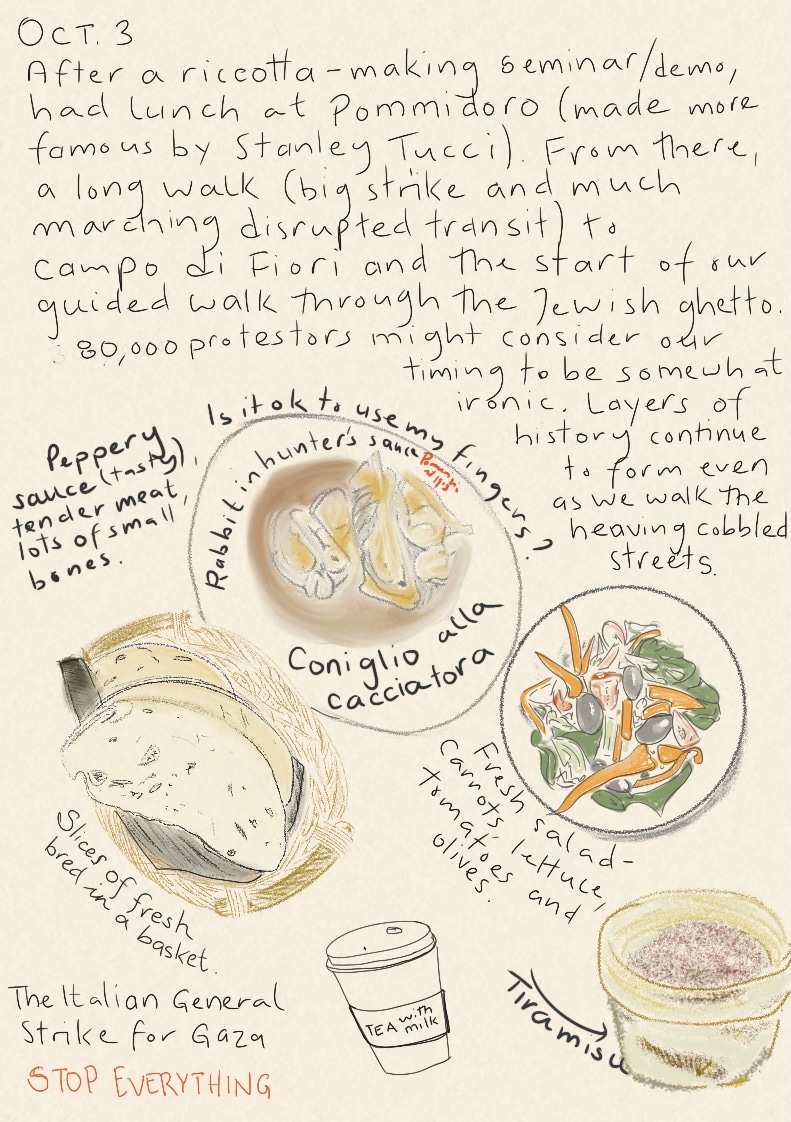 OCT. 3
After a riccotta-making seminar/demo,
had lunch at Pommidoro (made more
famous by Stanley Tucci). From there,
a long walk (big strike and much
marching disrupted transit) to
campo di Fiori and the start of our
guided walk through the Jewish ghetto.
80,000 protestors might consider our
timing to be somewhat
ironic. Layers of
history continue
to form even
as we walk the
heaving cobbled
streets.
Is it ok to use my fingers?
Peppery
sauce (tasty),
tender meat,
lots of small
bones.
Rabbit in hunter's sauce
Coniglio alla
cacciatora
Fresh salad-
Carrots, lettuce,
tomatoes and
olives.
Slices of fresh
bred in a basket.
TEA with
milk
Tiramisu
The Italian General
Strike for Gaza
STOP EVERYTHING